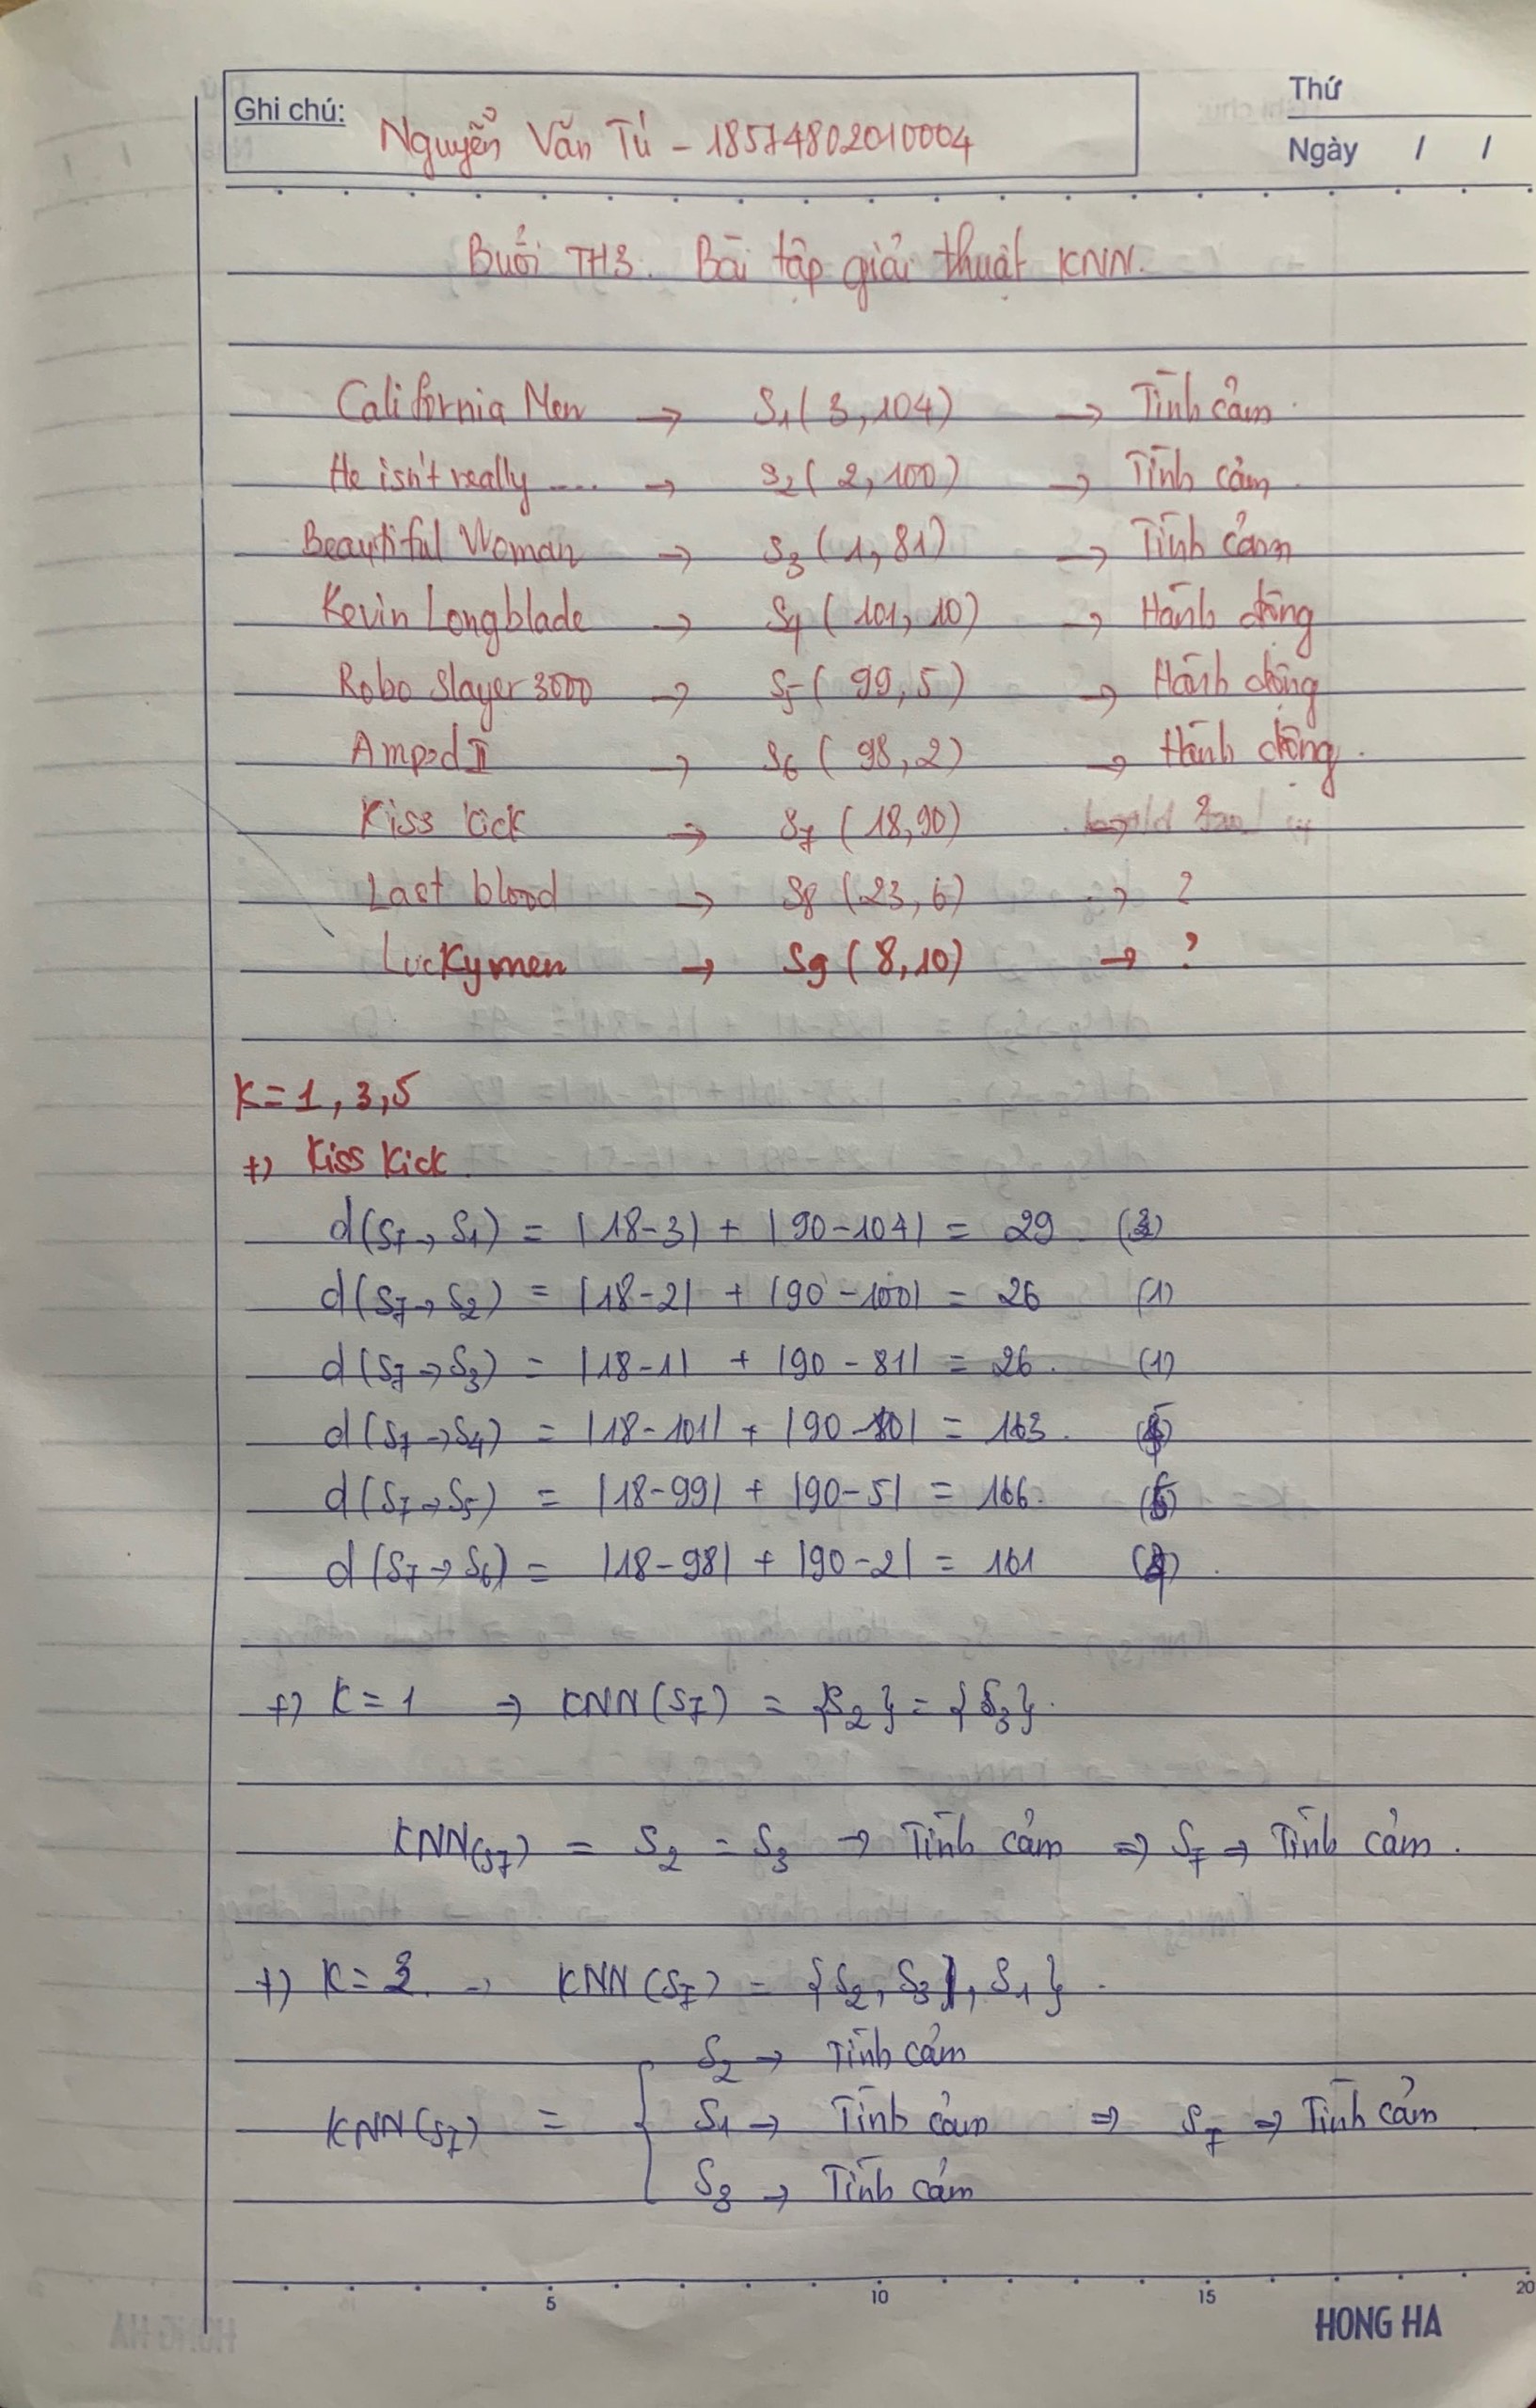 Ghi chú: Nguyễn Văn Tú - 18574802010004
Thứ
Ngày / /
Buổi TH3. Bài tập giải thuật KNN.
California Men → S1(3,104) → Tình cảm.
He isn't really .... → S2(2,100) → Tình cảm.
Beautiful Woman → S3(1,81) → Tình cảm
Kevin Longblade → S4(101,10) → Hành động
Robo Slayer 3000 → S5(99,5) → Hành động
Amped II → S6(98,2) → Hành động.
Kiss kick → S7(18,90) → ?
Last blood → S8(23,6) → ?
Luckymen → S9(8,10) → ?
K=1,3,5
+) Kiss Kick.
d(S7→S1) = |18-3| + |90-104| = 29 (3)
d(S7→S2) = |18-2| + |90-100| = 26 (1)
d(S7→S3) = |18-1| + |90-81| = 26. (1)
d(S7→S4) = |18-101| + |90-10| = 163. (5)
d(S7→S5) = |18-99| + |90-5| = 166. (6)
d(S7→S6) = |18-98| + |90-2| = 161 (4).
+) K=1 → KNN(S7) = {S2} = {S3}.
KNN(S7) = S2 = S3 → Tình cảm ⇒ S7 → Tình cảm.
+) K=3. → KNN(S7) = {S2, S3, S1}.
S2 → Tình cảm
KNN(S7) = { S1 → Tình cảm ⇒ S7 → Tình cảm
S3 → Tình cảm
5 10 15 20
HONG HA